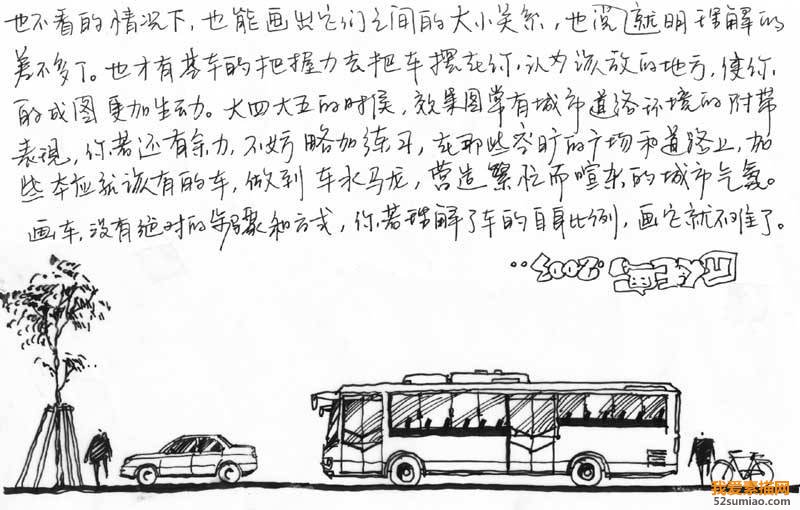 也不看的情况下，也能画出它们之间的大小关系，也说就明理解的
差不多了。也才有基车的把握力去把车摆在你认为该放的地方，使你
的成图更加生动。大四大五的时候，效果图常有城市道路环境的附带
表现，你若还有余力，不妨略加练习，在那些空旷的广场和道路上，加
些本应就该有的车，做到车水马龙，营造繁忙而喧杂的城市气氛。
画车，没有绝对的步骤和方式，你若理解了车的自身比例，画它就不难了。
我爱素描网
52sumiao.com